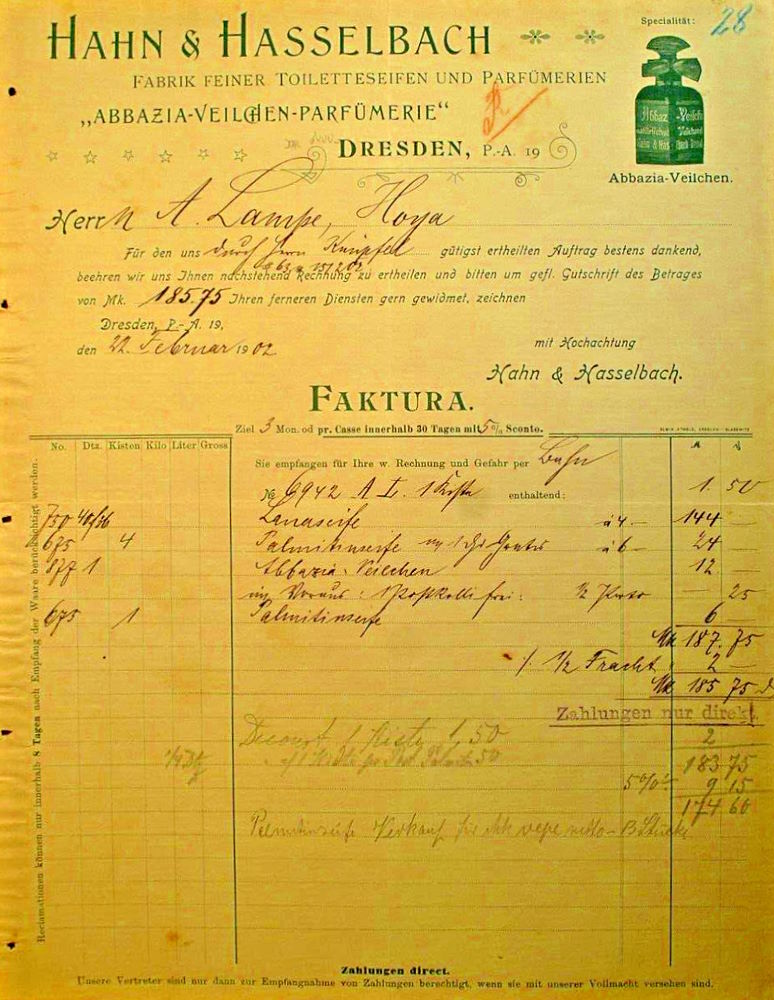 28
Specialität:
HAHN & HASSELBACH
FABRIK FEINER TOILETTESEIFEN UND PARFÜMERIEN
„ABBAZIA-VEILCHEN-PARFÜMERIE“
DRESDEN, P.-A. 19
Abbazia-Veilchen.
Herrn A. Lampe, Hoya
Für den uns durch Herrn Knüpfel gütigst ertheilten Auftrag bestens dankend,
beehren wir uns Ihnen nachstehend Rechnung zu ertheilen und bitten um gefl. Gutschrift des Betrages
von Mk. 185.75 Ihren ferneren Diensten gern gewidmet, zeichnen
Dresden, P.-A. 19,
den 22. Februar 1902
mit Hochachtung
Hahn & Hasselbach.
FAKTURA.
Ziel 3 Mon. od pr. Casse innerhalb 30 Tagen mit 5% Sconto.
No. Dtz. Kisten Kilo Liter Gross
Sie empfangen für Ihre w. Rechnung und Gefahr per Bahn
No 6942 A I. 1 Kiste enthaltend: 1. 50
750 Lanaseife à 4.— 144 —
675 4 Palmitinseife à 6— 24 —
877 1 Abbazia-Veilchen 12 —
im Voraus: 1 Postkolli frei: ½ Porto — 25
675 1 Palmitinseife 6
Mk 187.75
½ Fracht 2 —
Mk 185 75
Zahlungen nur direkt.
2
1 Kiste 1.50
183 75
5% 9 15
174 60
Palmitinseife Verkauf
Reclamationen können nur innerhalb 8 Tagen nach Empfang der Waare berücksichtigt werden.
Zahlungen direct.
Unsere Vertreter sind nur dann zur Empfangnahme von Zahlungen berechtigt, wenn sie mit unserer Vollmacht versehen sind.